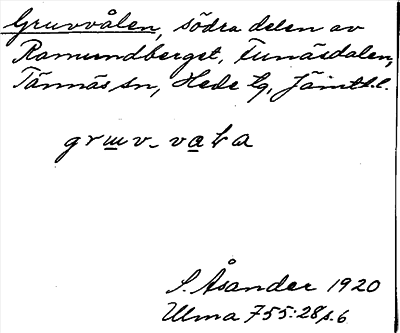 Gruvvålen, södra delen av
Ramundberget, Funäsdalen,
Tännäs sn, Hede tg, Jämtl.l.
S. Åsander 1920
Ulma 755:28 s.6